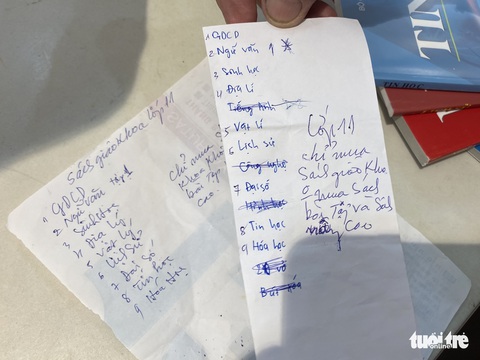 1 GDCD
2 Ngữ văn 1
3 Sinh học
4 Địa lí
Tiếng Anh
5 Vật lí
6 Lịch sử
Công nghệ
7 Đại số
Hình học
8 Tin học
9 Hóa học
Lớp 11
chỉ mua
Sách giáo khoa
0 mua sách
bài Tập và Sách
Cao
Sách giáo khoa lớp 11
1 GDCD
2 Ngữ văn Tập 1
3 Sinh
4 Địa lý
5 Vật lý
6 Lịch sử
7 Đại số
8 Tin học
9 Hóa học
chỉ mua
khoa
bài Tập
Cao
TIN
tuổi trẻ
online